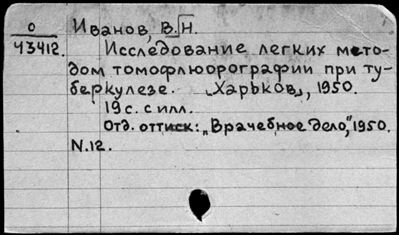 О Иванов, В.Н.
43412. Исследование легких мето-
дом томофлюорографии при ту-
беркулезе. „Харьков", 1950.
19 с. с илл.
Отд. оттиск: „Врачебное дело", 1950.
N.12.